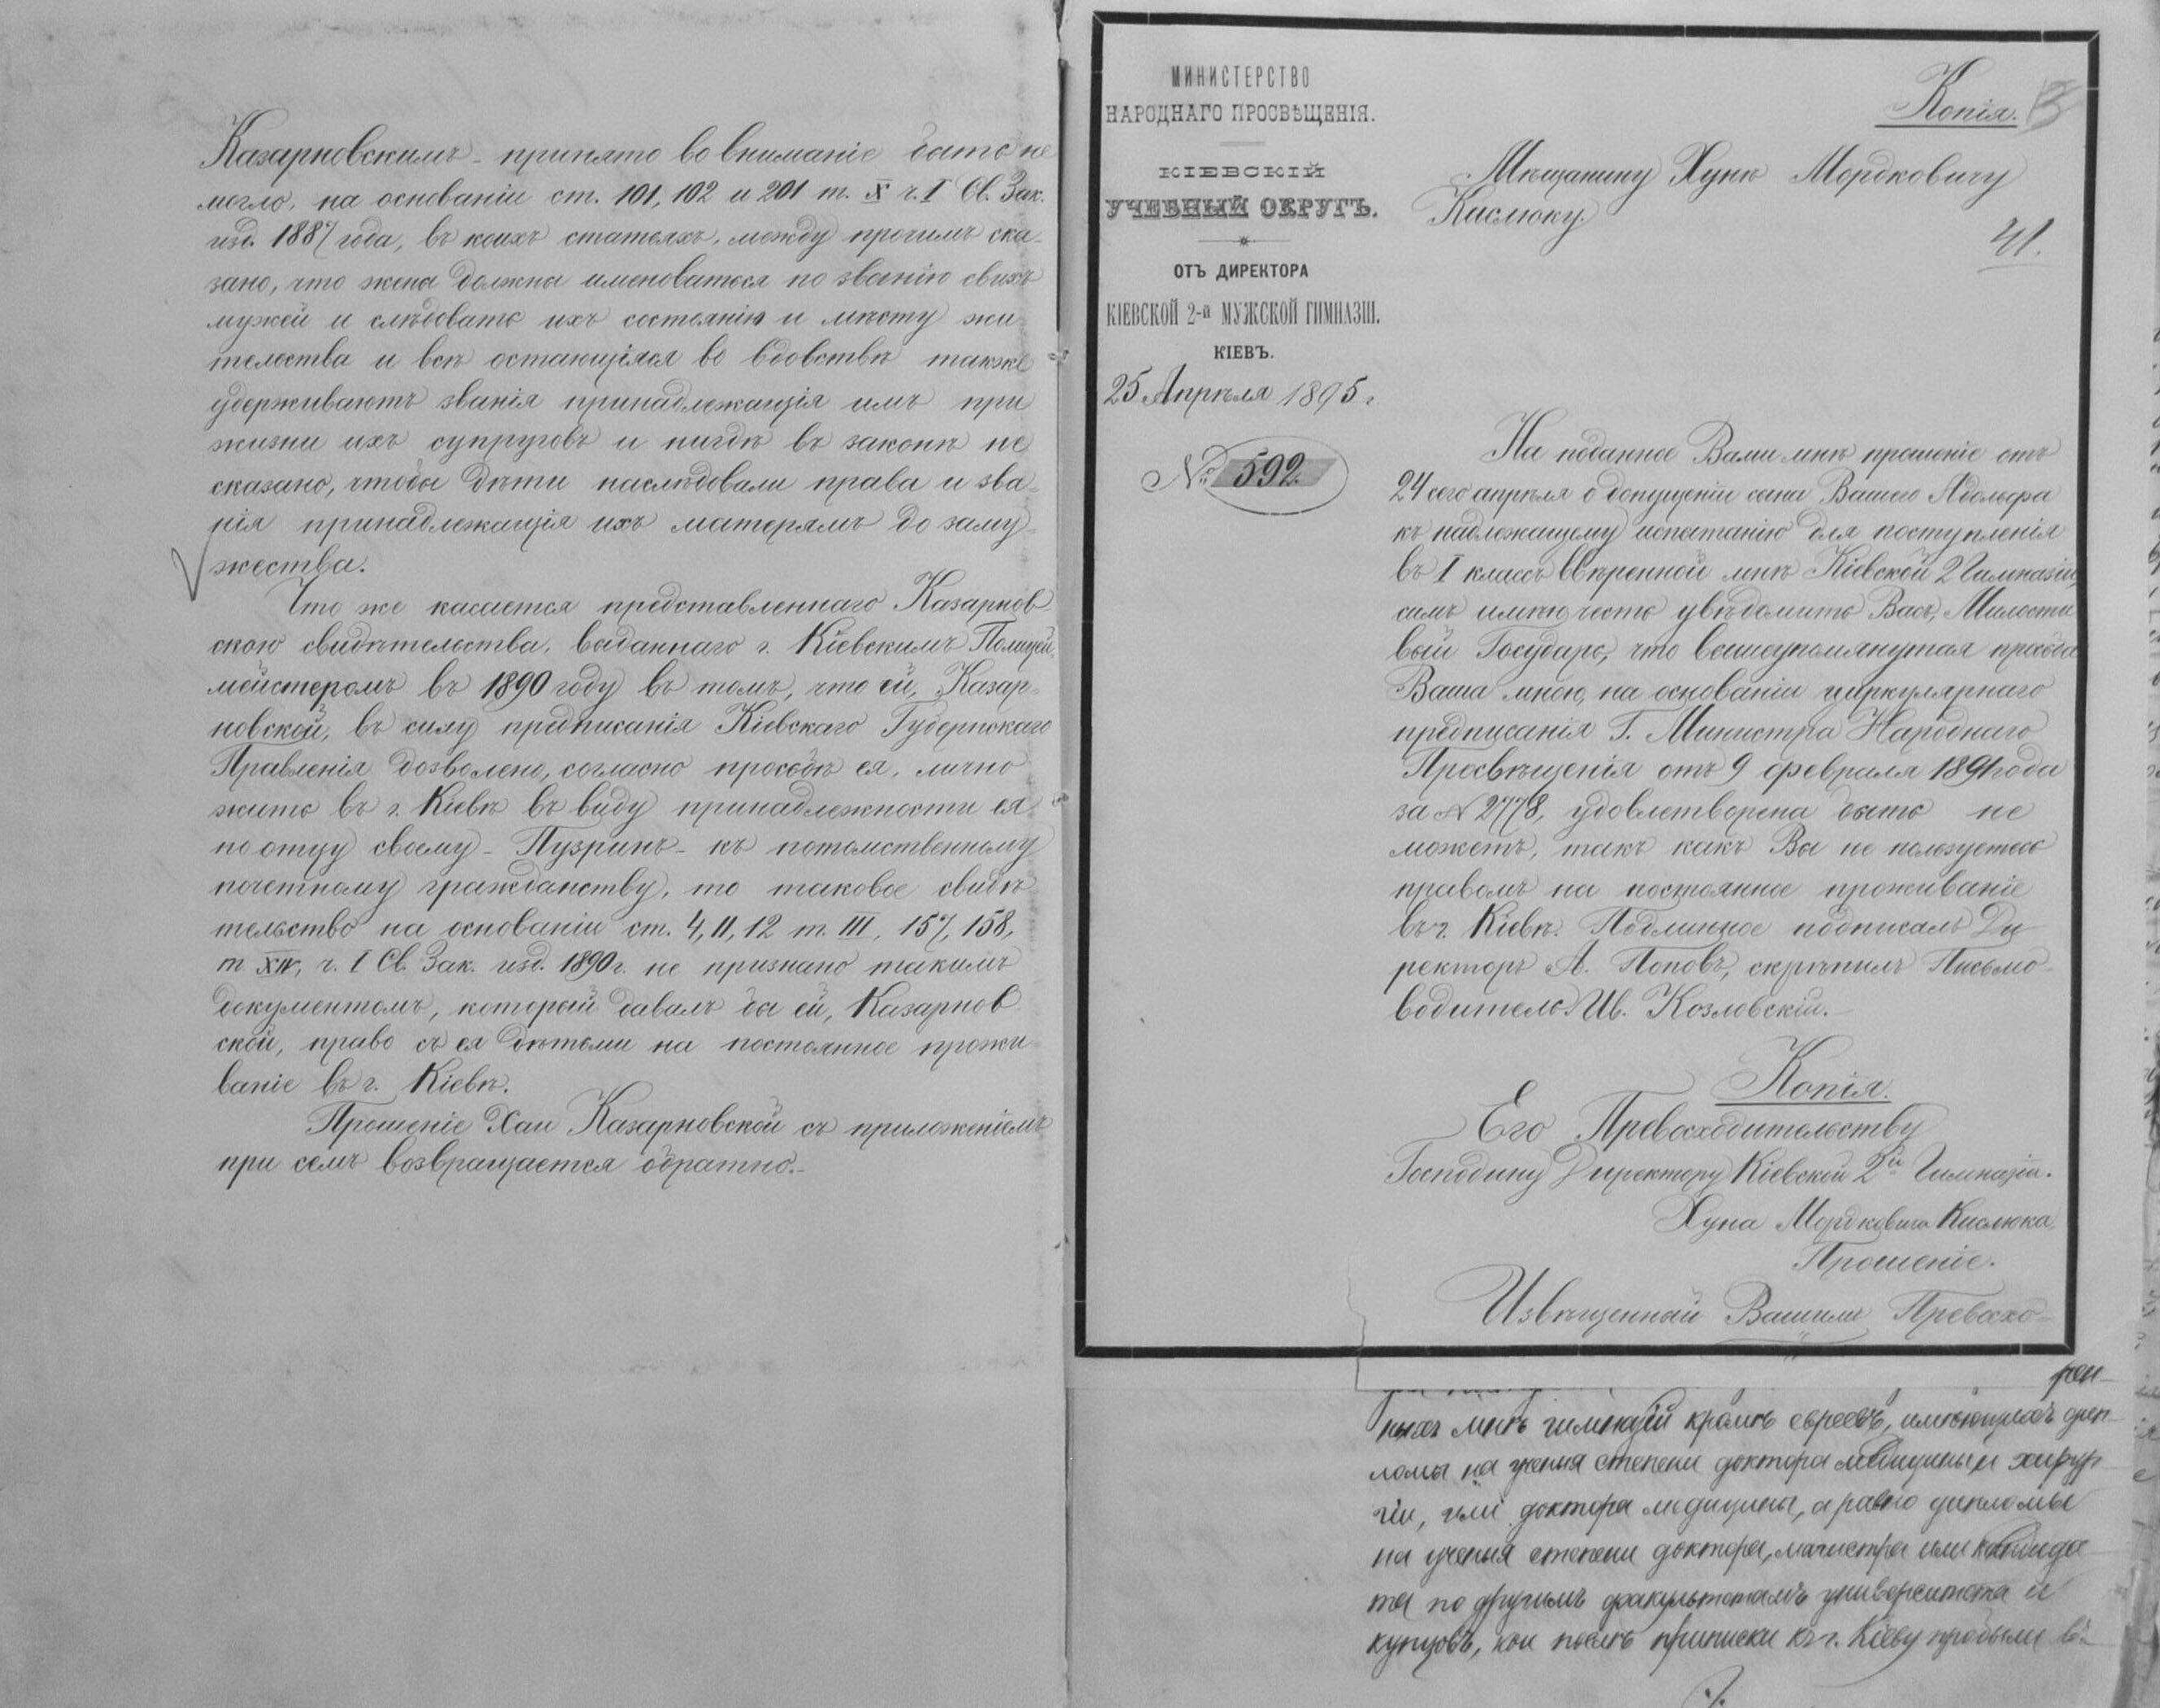 Казарновскимъ - принято во вниманіе быть не
могло, на основаніи ст. 101, 102 и 201 т. X ч. I Св. Зак.
изд. 1887 года, въ коихъ статьяхъ, между прочимъ ска-
зано, что жена должна именоваться по званію своихъ
мужей и слѣдовать ихъ состоянію и мѣсту жи-
тельства и всѣ остающіяся во вдовствѣ также
удерживаютъ званія принадлежащія имъ при
жизни ихъ супруговъ и нигдѣ въ законѣ не
сказано, чтобы дѣти наслѣдовали права и зва-
нія принадлежащія ихъ матерямъ до заму-
жества.
Что же касается представленнаго Казарнов-
скою свидѣтельства, выданнаго г. Кіевскимъ Полицей-
мейстеромъ въ 1890 году въ томъ, что ей, Казар-
новской, въ силу предписанія Кіевскаго Губернскаго
Правленія дозволено, согласно просьбѣ ея, лично
жить въ г. Кіевѣ въ виду принадлежности ея
по отцу своему - Пузринъ - къ потомственному
почетному гражданству, то таковое свидѣ-
тельство на основаніи ст. 4, 11, 12 т. III, 157, 158,
т. XIV, ч. I Св. Зак. изд. 1890 г. не признано такимъ
документомъ, который давалъ бы ей, Казарнов-
ской, право съ ея дѣтьми на постоянное прожи-
ваніе въ г. Кіевѣ.
Прошеніе Хаи Казарновской съ приложеніемъ
при семъ возвращается обратно.-
МИНИСТЕРСТВО
НАРОДНАГО ПРОСВѢЩЕНІЯ.
КІЕВСКІЙ
УЧЕБНЫЙ ОКРУГЪ.
ОТЪ ДИРЕКТОРА
КІЕВСКОЙ 2-й МУЖСКОЙ ГИМНАЗІИ.
КІЕВЪ.
25 Апрѣля 1895 г.
№ 592.
Копія.
Мѣщанину Хунѣ Мордковичу
Кислюку.
41.
На поданное Вами мнѣ прошеніе отъ
24 сего апрѣля о допущеніи сына Вашего Адольфа
къ надлежащему испытанію для поступленія
въ I классъ ввѣренной мнѣ Кіевской 2 Гимназіи,
симъ имѣю честь увѣдомить Васъ, Милости-
вый Государь, что вышеупомянутая просьба
Ваша мною, на основаніи циркулярнаго
предписанія Г. Министра Народнаго
Просвѣщенія отъ 9 февраля 1891 года
за № 2778, удовлетворена быть не
можетъ, такъ какъ Вы не пользуетесь
правомъ на постоянное проживаніе
въ г. Кіевѣ. Подлинное подписалъ Ди-
ректоръ А. Поповъ, скрѣпилъ Письмо-
водитель Ив. Козловскій.-
Копія.
Его Превосходительству
Господину Директору Кіевской 2й Гимназіи.
Хуна Мордковича Кислюка
Прошеніе.
Извѣщенный Вашимъ Превосхо-
рен-
ныхъ мнѣ гимназій кромѣ евреевъ, имѣющихъ дип-
ломы на ученыя степени доктора медицины и хирур-
гіи, или доктора медицины, а равно дипломы
на ученыя степени доктора, магистра или кандида-
та по другимъ факультетамъ университета и
купцовъ, кои послѣ приписки къ г. Кіеву пробыли въ